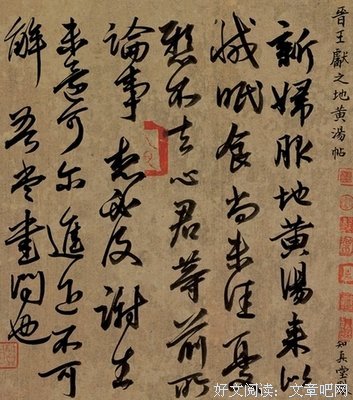 晋王獻之地黄湯帖
新婦服地黄湯来似
減眠食尚未佳憂
懸不去心君等前所
論事想必及謝生
未還可爾進退不可
解吾當書問也
知真堂
好文阅读：文章吧网